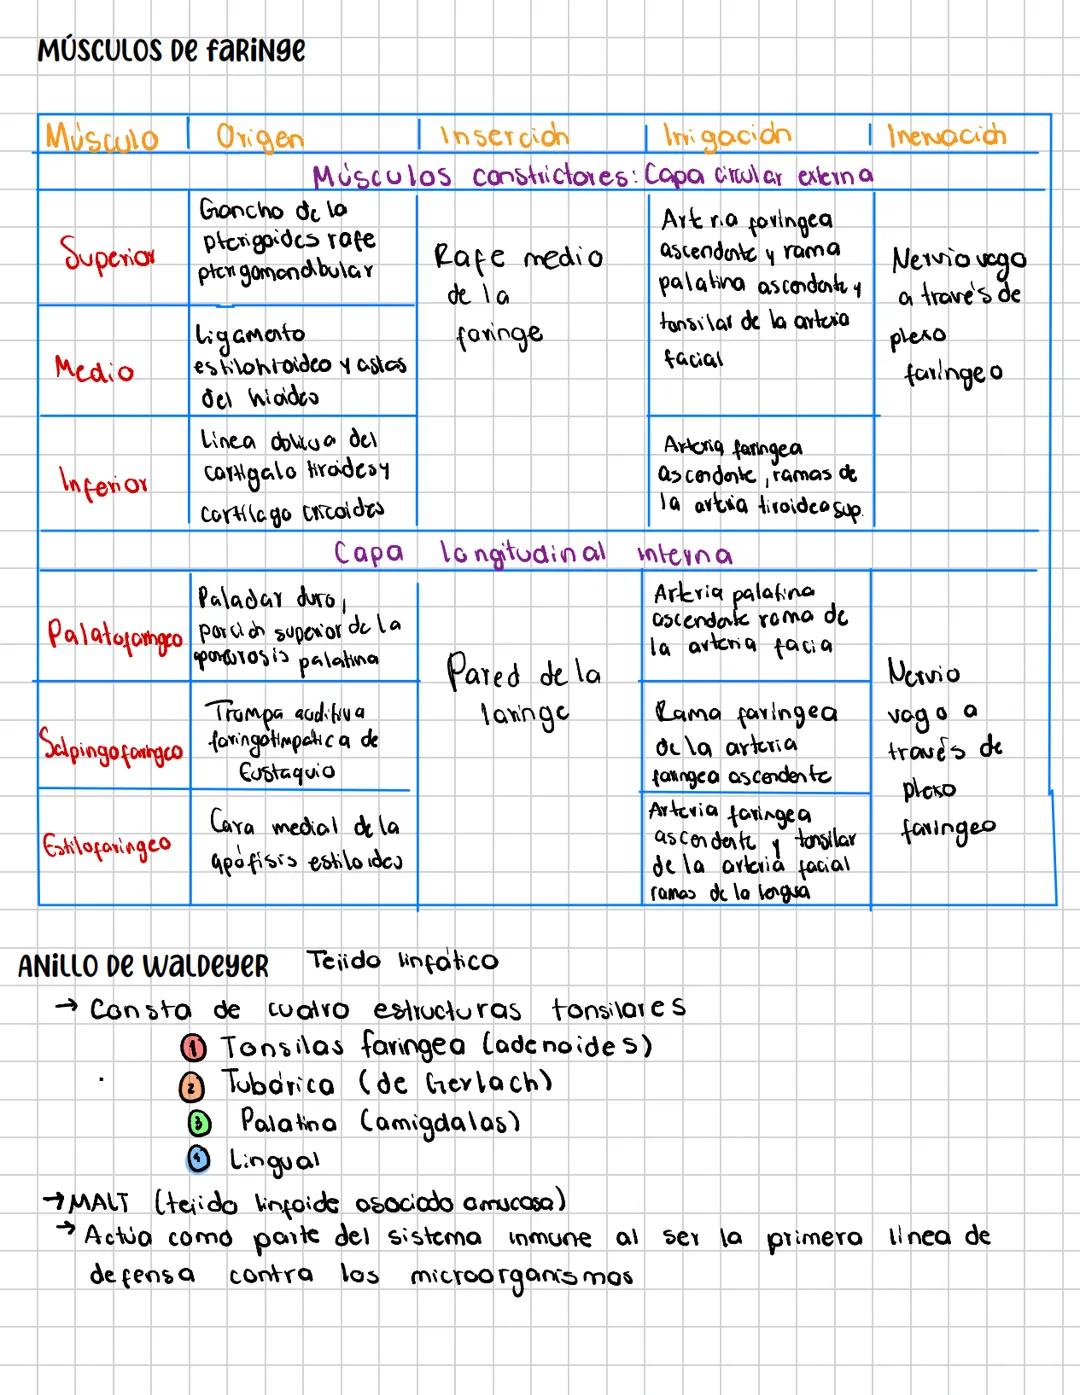 MÚSCULOS DE FARINGE
Músculo Origen Inserción Irrigación Inervación
Músculos constrictores: Capa circular externa
Superior
Gancho de la
pterigoides rafe
pterigomandibular
Rafe medio
de la
faringe
Arteria faringea
ascendente y rama
palatina ascendente y
tonsilar de la arteria
facial
Nervio vago
a través de
plexo
faríngeo
Medio
Ligamento
estilohioideo y astas
del hioides
Inferior
Linea oblicua del
cartigalo tiroides y
cartílago cricoides
Arteria faringea
ascendente, ramas de
la arteria tiroidea sup.
Capa longitudinal interna
Palatofaringeo
Paladar duro,
porción superior de la
palatina
Pared de la
laringe
Arteria palatina
ascendente rama de
la arteria facia
Nervio
vago a
través de
plexo
faringeo
Salpingofaringeo
Trompa auditiva
faringotimpatica de
Eustaquio
Rama faringea
de la arteria
faringea ascendente
Estilofaringeo
Cara medial de la
apófisis estiloides
Arteria faringea
ascendente y tonsilar
de la arteria facial
ramas de la lengua
ANILLO DE WALDEYER Tejido linfático
→ Consta de cuatro estructuras tonsilares
1 Tonsilas faringea (adenoides)
2 Tubárica (de Gerlach)
3 Palatina (amigdalas)
4 Lingual
→ MALT (tejido linfoide asociado a mucosa)
→ Actúa como parte del sistema inmune al ser la primera línea de
defensa contra los microorganismos